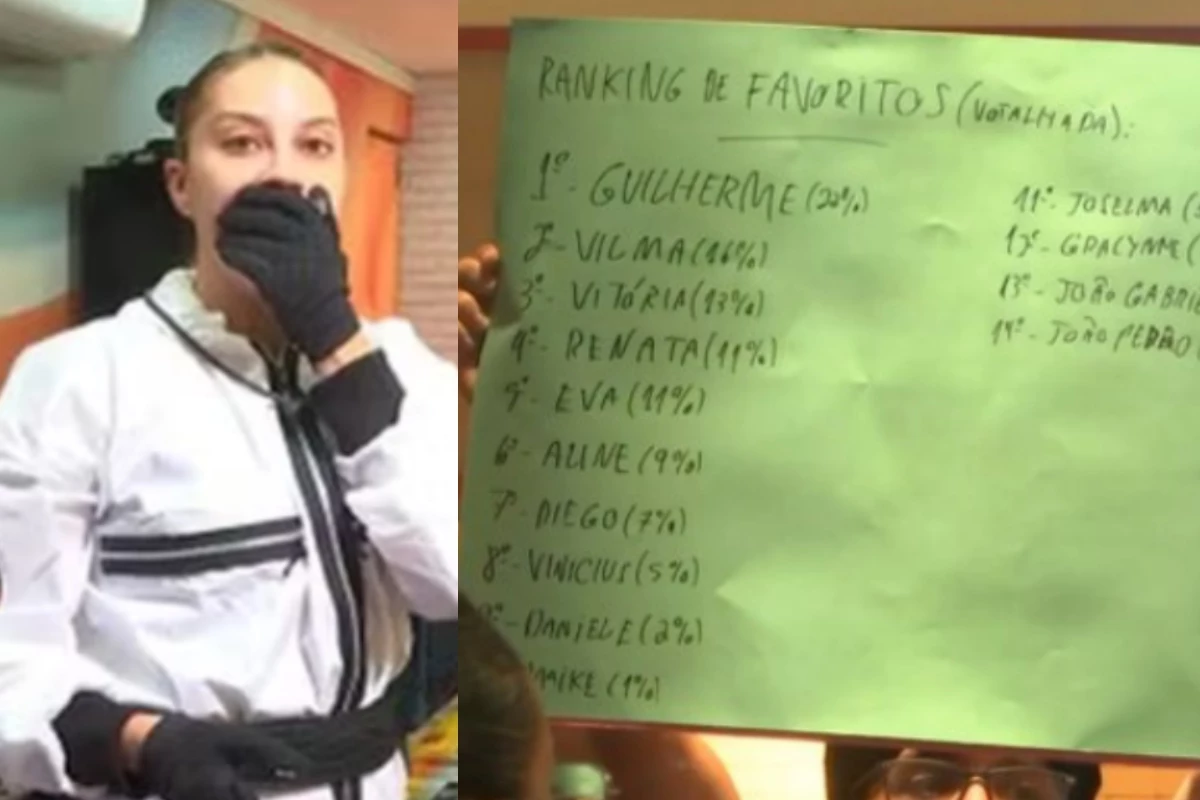 RANKING DE FAVORITOS (VOTALHADA):
1º- GUILHERME (20%)
2º- VILMA (16%)
3º- VITÓRIA (13%)
4º- RENATA (11%)
5º- EVA (11%)
6º- ALINE (9%)
7º- DIEGO (7%)
8º- VINICIUS (5%)
9º- DANIELE (2%)
MAIKE (1%)
11º- JOSELMA (
12º- GRACYNNE (
13º- JOÃO GABRI
14º- JOÃO PEDRO (